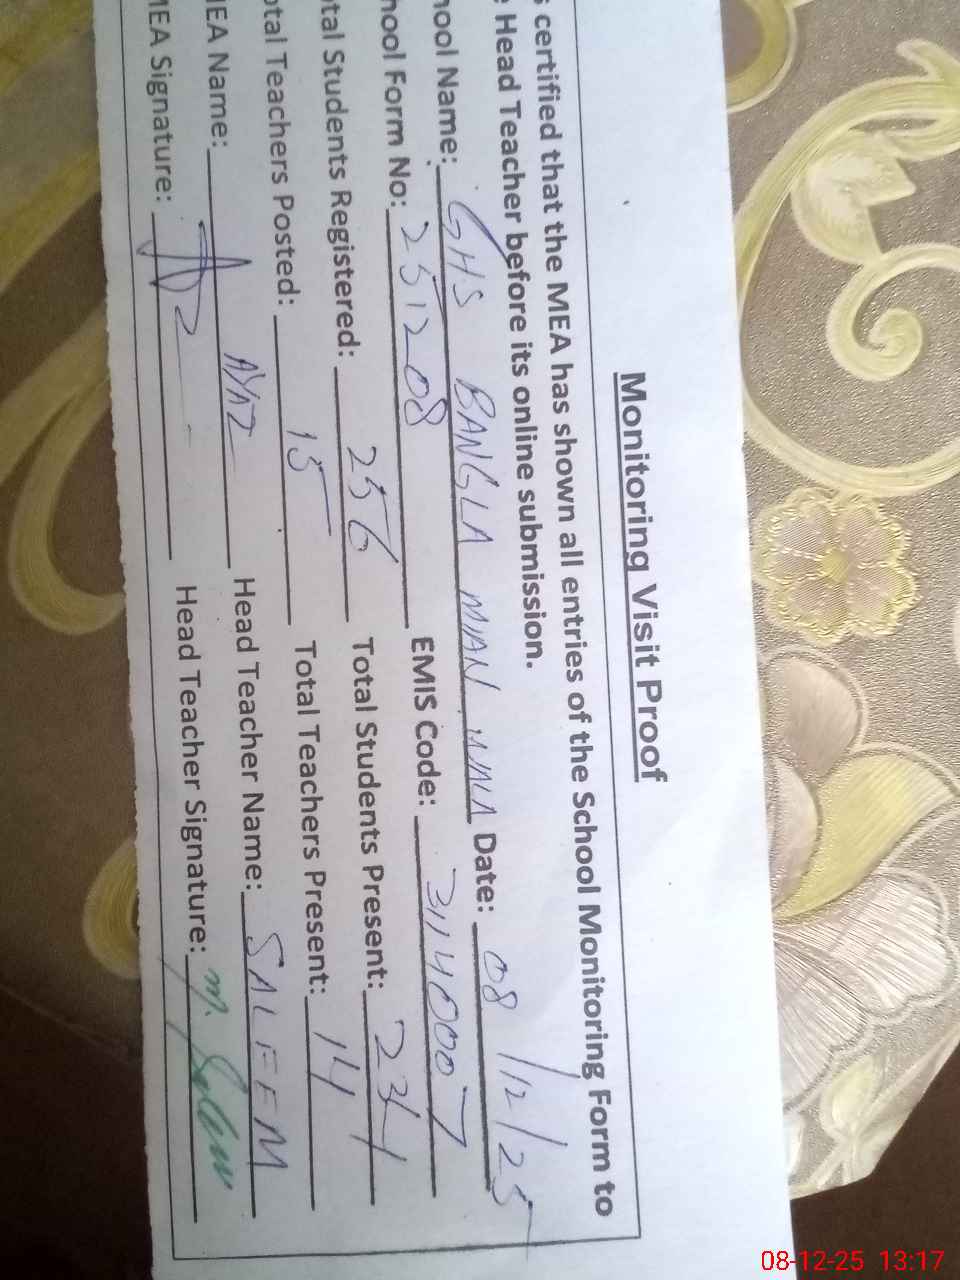 Monitoring Visit Proof
s certified that the MEA has shown all entries of the School Monitoring Form to
e Head Teacher before its online submission.
hool Name: GHS BANGLA MIAN WALA Date: 08/12/25
hool Form No: 251208 EMIS Code: 31140007
tal Students Registered: 256 Total Students Present: 234
otal Teachers Posted: 15 Total Teachers Present: 14
MEA Name: AYAZ Head Teacher Name: SALEEM
MEA Signature: Head Teacher Signature: M. Saleem
08-12-25 13:17